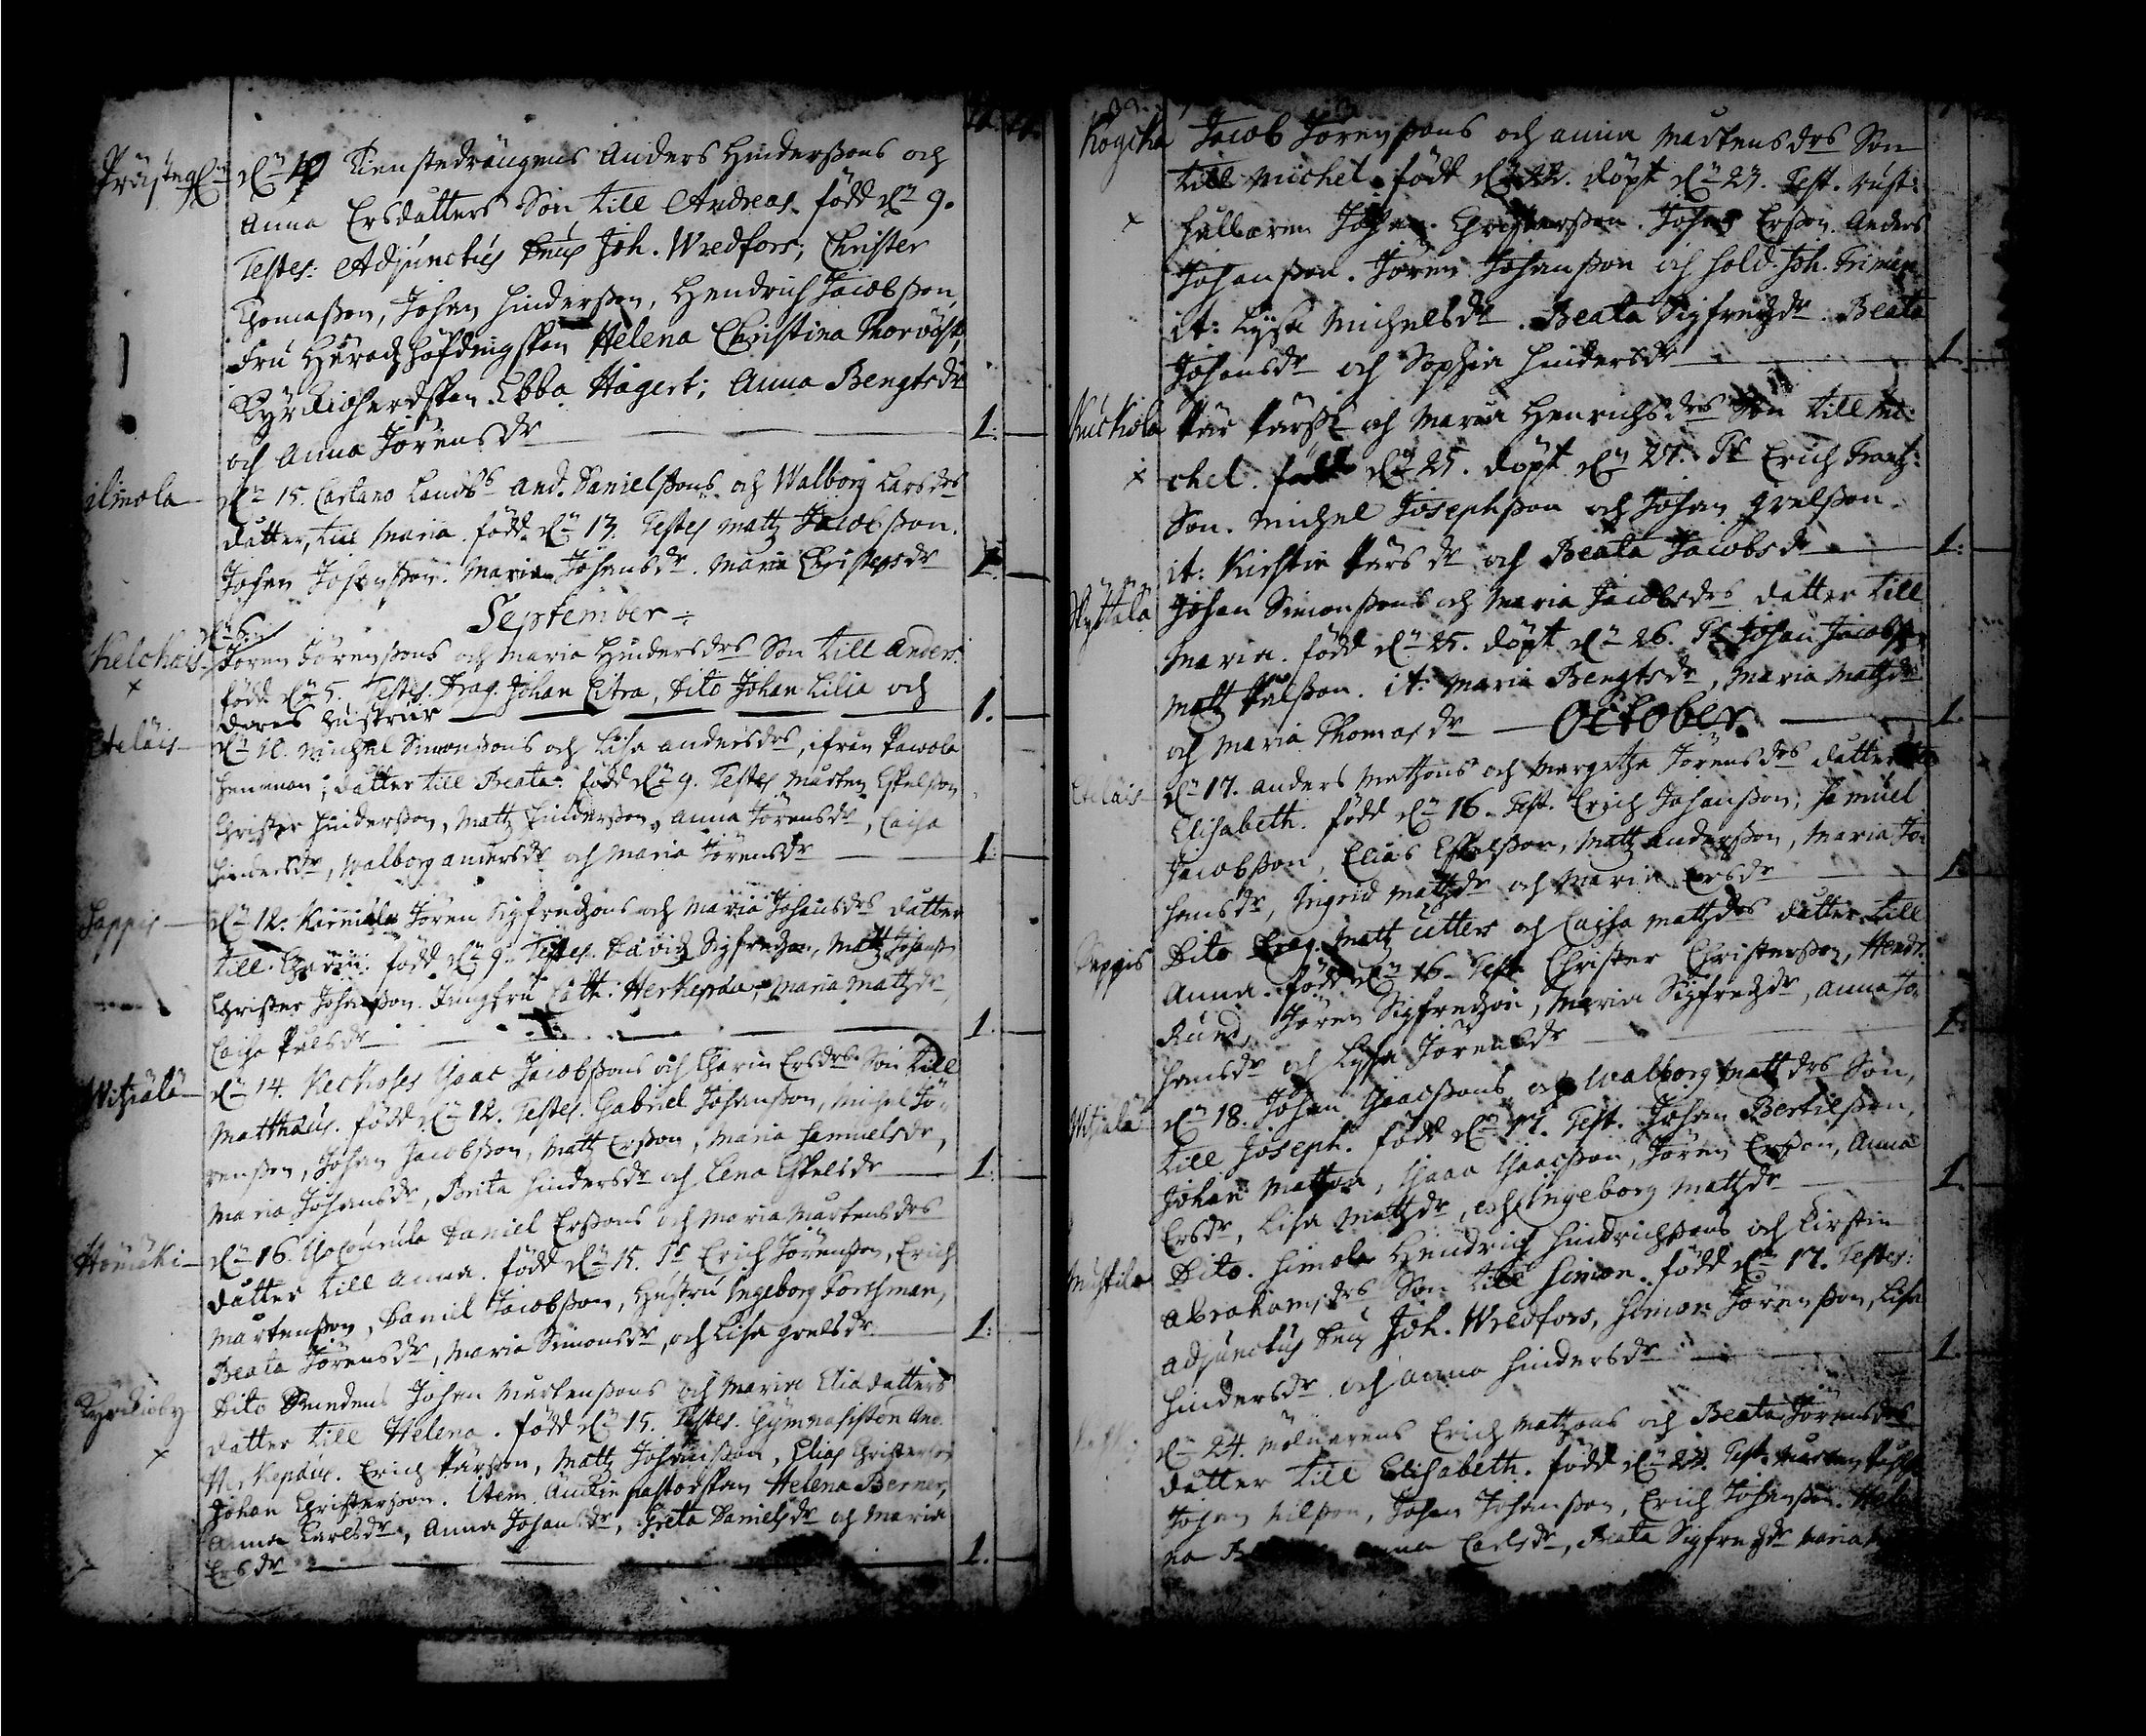 Prästeg. Dn 10 Tienstedrängens Anders Hinderssons och
Anna Ersdatters Son till Andreas. född dn 9.
Testes: Adjunctus Joh. Wredfors; Christer
Thomasson, Johan Hindersson, Hendrich Jacobsson,
Fru Häradzhöfdingskan Helena Christina
Kyrkioherdskan Ebba Hagert; Anna Bengtsdr
och Anna Jörensdr 1.
dn 15. And. Danielssons och Walborg Larsdrs
datter, till Maria. född dn 13. Testes Matz Jacobsson.
Johan Johansson. Maria Johansdr. Maria Christersdr 1.
September
Jören Jörenssons och Maria Hindersdrs Son till Anders.
född dn 5. Testes. Drag. Johan Citra, Dito Johan Lilia och
deras Hustrur 1.
Eteläis dn 10. Michel Simonssons och Lisa Andersdrs, ifrån Pawola
hemman; datter till Beata. född dn 9. Testes Mårten Eskelsson
Christer Hindersson, Matz Hindersson, Anna Jörensdr, Caisa
Hindersdr, Walborg Andersdr och Maria Jörensdr 1.
dn 12. Jören Sigfredzons och Maria Johansdrs datter
till född dn 9. Testes. David Sigfredzon, Matz Johansson
Christer Johansson. Jungfru Cath: Herkepæa, Maria Matzdr,
Caisa Pålsdr 1.
Witsiälä dn 14. Isaac Jacobssons och Charin Ersdrs Son till
Matthæus. född dn 12. Testes. Gabriel Johansson, Michel Jö-
rensson, Johan Jacobsson, Matz Ersson, Maria Samuelsdr,
Maria Johansdr, Brita Hindersdr och Lena Eskelsdr 1.
dn 16. Daniel Erssons och Maria Mårtensdrs
datter till Anna. född dn 15. Ts Erich Jörensson, Erich
Mårtensson, Daniel Jacobsson, Hustru Ingeborg Forssman,
Beata Jörensdr, Maria Simonsdr, och Lisa Grelsdr 1.
Kyrkioby Dito Smedens Johan Mårtenssons och Maria Eliædatters
datter till Helena. född dn 15. Testes. Gymnasisten And.
Herkepæus. Erich Pärsson, Matz Johansson, Elias Christersson
Johan Christersson. Item. Helena Berner,
Anna Carlsdr, Anna Johansdr, Greta Danielsdr och Maria
Ersdr 1.
Jacob Jörenssons och Anna Mårtensdrs Son
till Michel. född dn 22. döpt dn 23. Test. Rust-
hållaren Johan Christersson. Johan Ersson. Anders
Johansson. Jören Johansson och Sold. Joh.
it: Lysa Michelsdr. Beata Sigfredzdr. Beata
Johansdr och Sophia Hindersdr 1.
Kuckola Pär Pärss. och Maria Henrichsdrs Son till Mi-
chel. född dn 25. döpt dn 27. Ts Erich Frantz-
Son. Michel Josephsson och Johan Grelsson.
it: Kirstin Pärsdr och Beata Jacobsdr 1.
Johan Simonssons och Maria Jacobsdrs datter till
Maria. född dn 25. döpt dn 26. Ts Johan Jacobsson
Matz Pålsson. it: Maria Bengtsdr, Maria Matzdr
och Maria Thomasdr October. 1.
Etelais dn 17. Anders Matzons och Margetha Jörensdrs datter
Elisabeth. född dn 16. Test. Erich Johansson, Samuel
Jacobsson, Elias Eskelsson, Matz Andersson, Maria Jo-
hansdr, Ingrid Matzdr och Maria Ersdr 1.
Seppis Dito Drag. Matz Utters och Caisa Matzdrs datter till
Anna. född dn 16. Test. Christer Christersson, Hendr.
Rund, Jören Sigfredzon, Maria Sigfredzdr, Anna Jo-
hansdr och Lysa Jörensdr 1.
Witsiälä dn 18. Johan Isaacssons och Walborg Mattzdrs Son,
till Joseph. född dn 17. Test. Johan Bertilsson,
Johan Matzon, Isaac Isaacsson, Jören Ersson, Anna
Ersdr, Lisa Matzdr, och Ingeborg Matzdr 1.
Mustila Dito. Simola Hendrich Hindrichssons och Kirstin
Abrahamsdrs Son till Simon. född dn 17. Testes:
Adjunctus Joh. Wredfors, Simon Jörensson, Lisa
Hindersdr och Anna Hindersdr 1.
dn 24. Mölnarens Erich Matzons och Beata Jörensdrs
datter till Elisabeth. född dn 24. Test. Mårten
Johan Nilsson, Johan Johansson, Erich Johansson. Hele-
na Anna Carlsdr, Beata Sigfredzdr Maria